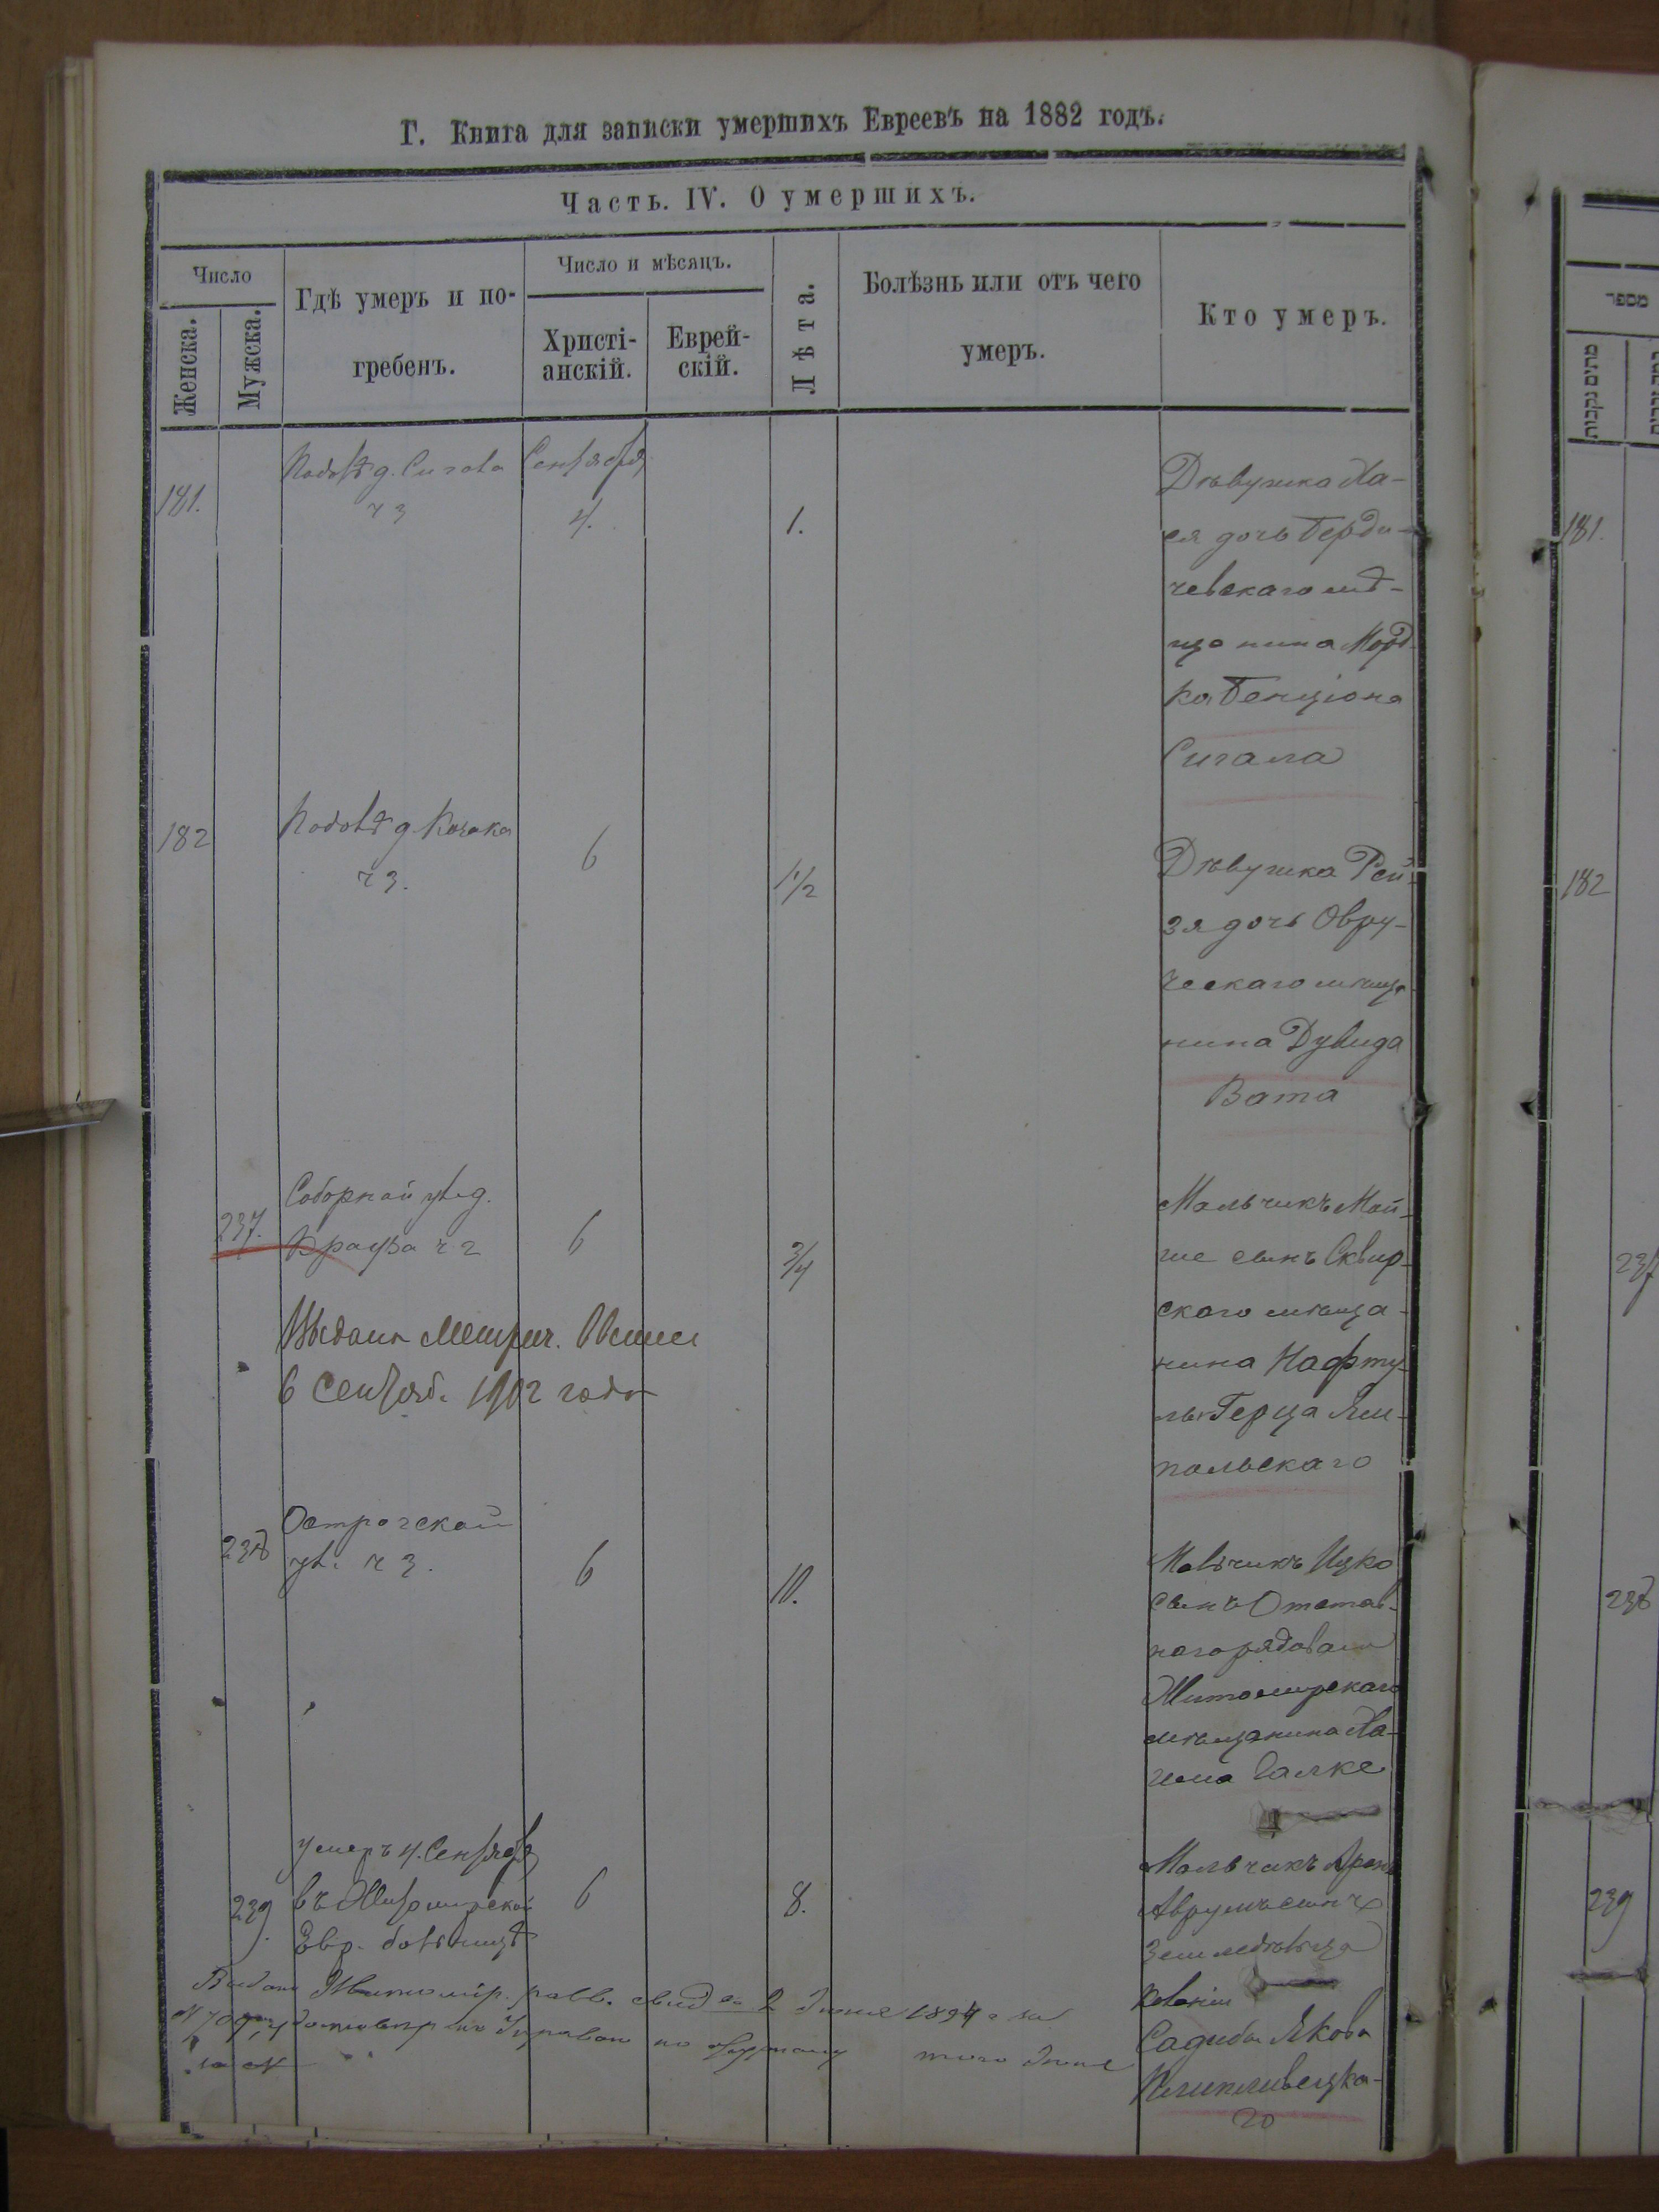 Г. Книга для записки умершихъ Евреевъ на 1882 годъ.
Часть. IV. О умершихъ.
Число
Женска.
Мужска.
Гдѣ умеръ и по-
гребенъ.
Число и мѣсяцъ.
Христі-
анскій.
Еврей-
скій.
Лѣта.
Болѣзнь или отъ чего
умеръ.
Кто умеръ.
181.
д. Сигала
ч 3
Сентября
4.
1.
Дѣвушка Ха-
ся дочь Берди-
чевскаго мѣ-
щанина Морд-
ка Бенціона
Сигала
182
д. Козака
ч 3.
6
1 1/2
Дѣвушка Рей-
зя дочь Овру-
ческаго мѣща-
нина Дувида
Вата
237.
Соборной ул. д.
Крауза ч 2
6
3/4
Мальчикъ Мой-
ше сынъ Сквир-
скаго мѣща-
нина Нафту-
ль Герца Ям-
польскаго
Выдана Метрич.
6 Сентяб. 1902 года
238
Острогской
ул. ч 3.
6
10.
Мальчикъ Ицко
сынъ Отстав-
наго рядоваго
Житомирскаго
мѣщанина Ха-
има Галке
239.
умеръ 4. Сентября
въ Житомирской
Евр. больницѣ
6
8.
Мальчикъ Аронъ
Аврумъ сынъ
Земледѣльца
Колоніи
Садиба Якова
го
Выдано Житомір. равв. свид. 2 Июня 1894 г. за
того Июня
за №
מספר
181.
182
237
238
239